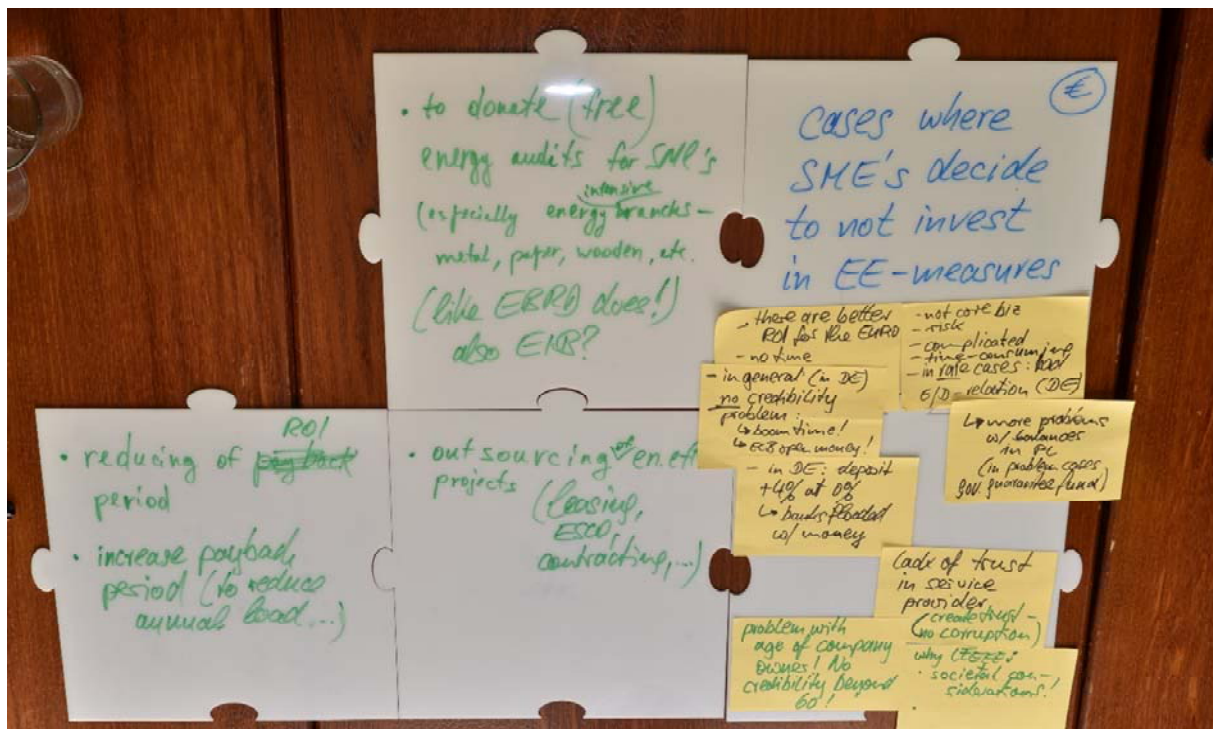 • to donate (free)
energy audits for SME's
intensive
(especially energy branchs -
metal, paper, wooden, etc.
(like EBRD does!)
also EIB?
€
cases where
SME's decide
to not invest
in EE-measures
- there are better
ROI for the EURO
- no time
- not core biz
- risk
- complicated
- time-consuming
- in rare cases:
E/D-relation (DE)
- in general (in DE)
no credibility
problem:
↳ boom time!
↳ ECB open money!
↳ more problems
w/ balances
in PL
(in problem cases
gov. guarantee fund)
- in DE: deposit
+4% at 0%
↳ banks flooded
w/ money
ROI
• reducing of pay back
period
• increase payback
period (to reduce
annual load...)
• outsourcing of en.eff
projects
(leasing,
ESCO,
contracting,...)
Lack of trust
in service
provider
(create trust -
no corruption)
problem with
age of company
owner! No
credibility beyond
60!
why
• societal con-
siderations!